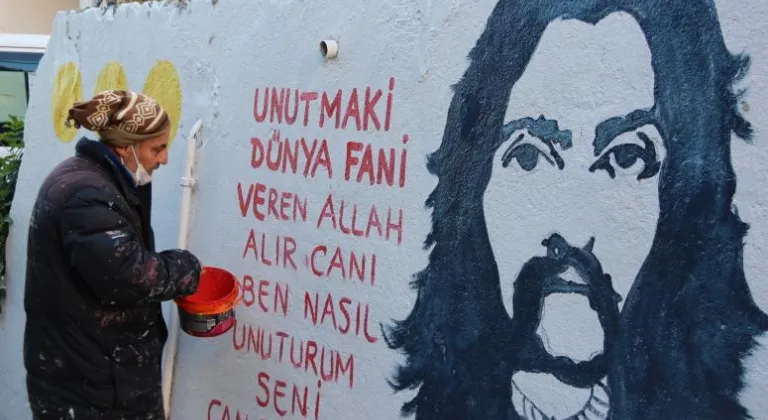 UNUTMAKİ
DÜNYA FANİ
VEREN ALLAH
ALIR CANI
BEN NASIL
UNUTURUM
SENİ